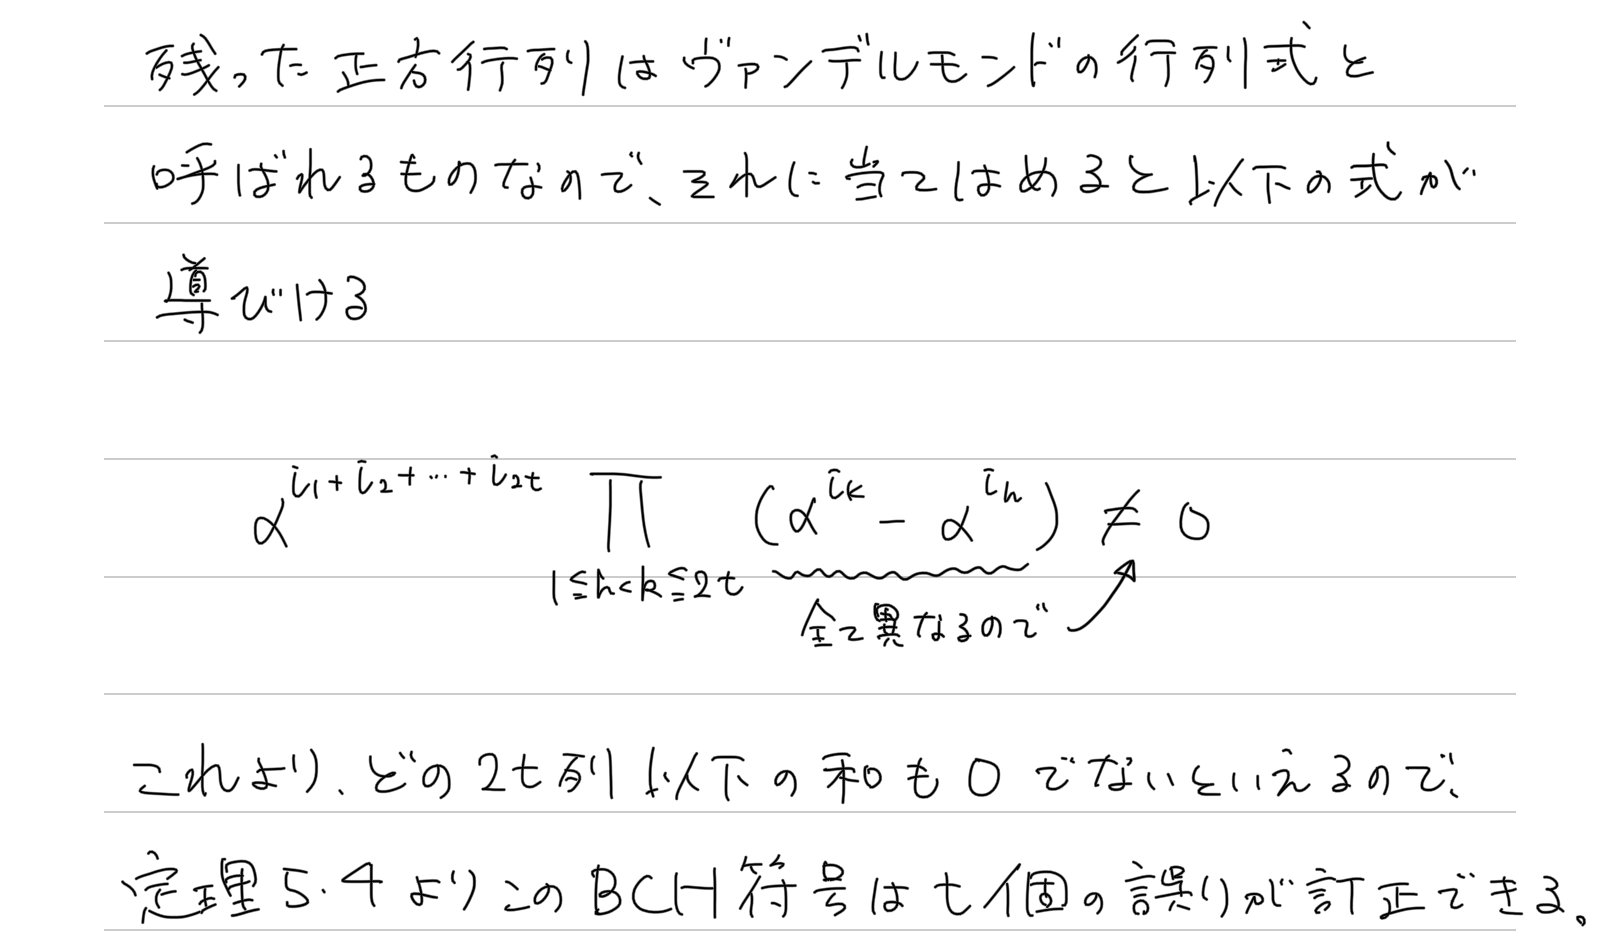 残った正方行列はヴァンデルモンドの行列式と
呼ばれるものなので、それに当てはめると以下の式が
導びける
α^{i₁+i₂+…+i_{2t}} ∏_{1≦h<k≦2t} (α^{i_k} - α^{i_h}) ≠ 0
全て異なるので
これより、どの2t列以下の和も0でないといえるので、
定理5.4よりこのBCH符号はt個の誤りが訂正できる。